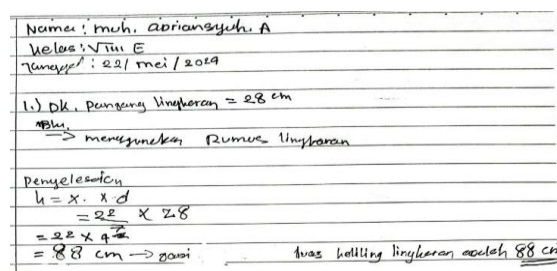 Nama : muh. abriansyah. A
kelas : VIII E
Tanggal : 22/ mei / 2024
1.) Dk. panjang lingkaran = 28 cm
→ menggunakan Rumus lingkaran
Penyelesaian
k = x. x d
= 22 x 28
= 22 x 4
= 88 cm →
luas keliling lingkaran adalah 88 cm